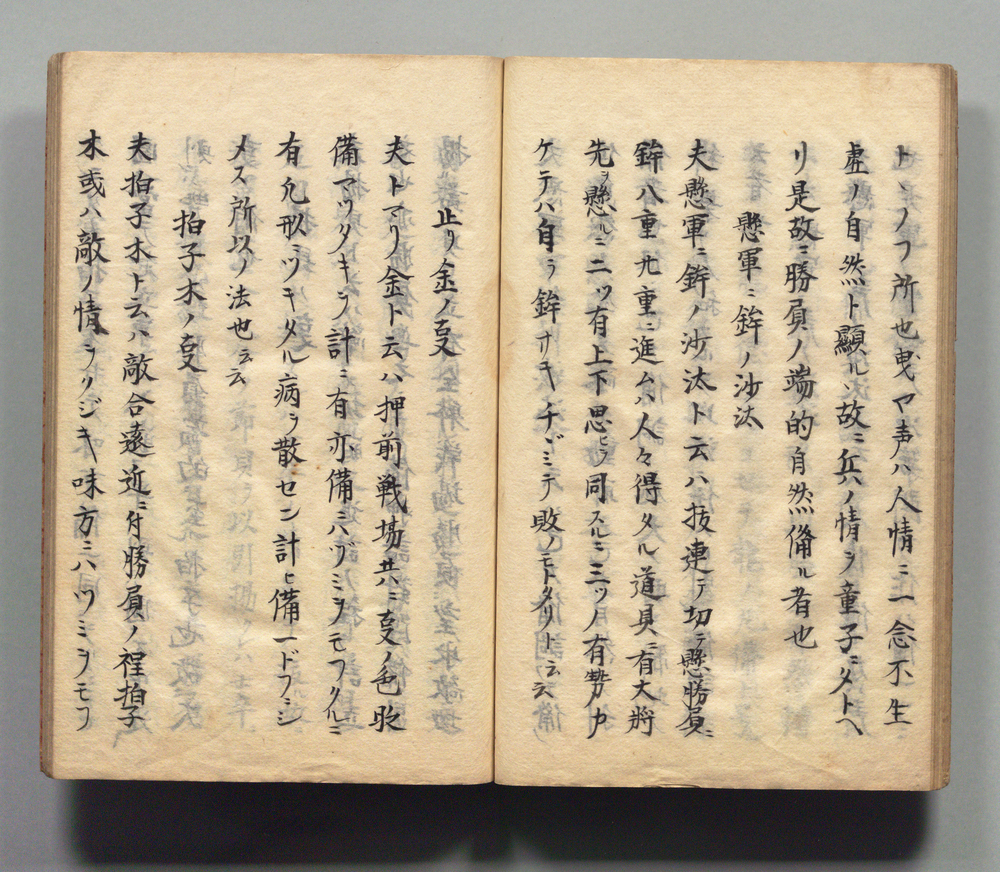 トヽノフ所也曳ヤ声ハ人情ニ一念不生
虚ノ自然ト顯ルヽ故ニ兵ハノ情ヲ童子ニタトヘ
リ是故ニ勝負ノ端的自然備ル者也
懸軍ニ鉾ノ沙汰
夫懸軍ニ鉾ノ沙汰ト云ハ抜連テ切テ懸勝負ニ
鉾八重九重ニ進ムハ人々得タル道具ニ有大將
先ヲ懸ルニ二ツ有上下思ヒヲ同スルニ三ツノ有勢カ
ケテハ自ラ鉾サキチヾミテ敗ノモトタリト云云
止リ金ノ叓
夫トマリ金ト云ハ押前戦場共ニ叓ノ色
備マツタキヲ計ニ有亦備ニハヅミヲモフクルニ
有凢形ニツキタル病ヲ散セン計ヒ備一ドフニシ
メス所以ノ法也云云
拍子木ノ叓
夫拍子木ト云ハ敵合遠近ニ付勝負ノ程拍子
木或ハ敵ノ情ヲクジキ味方ニハツミヲモフ